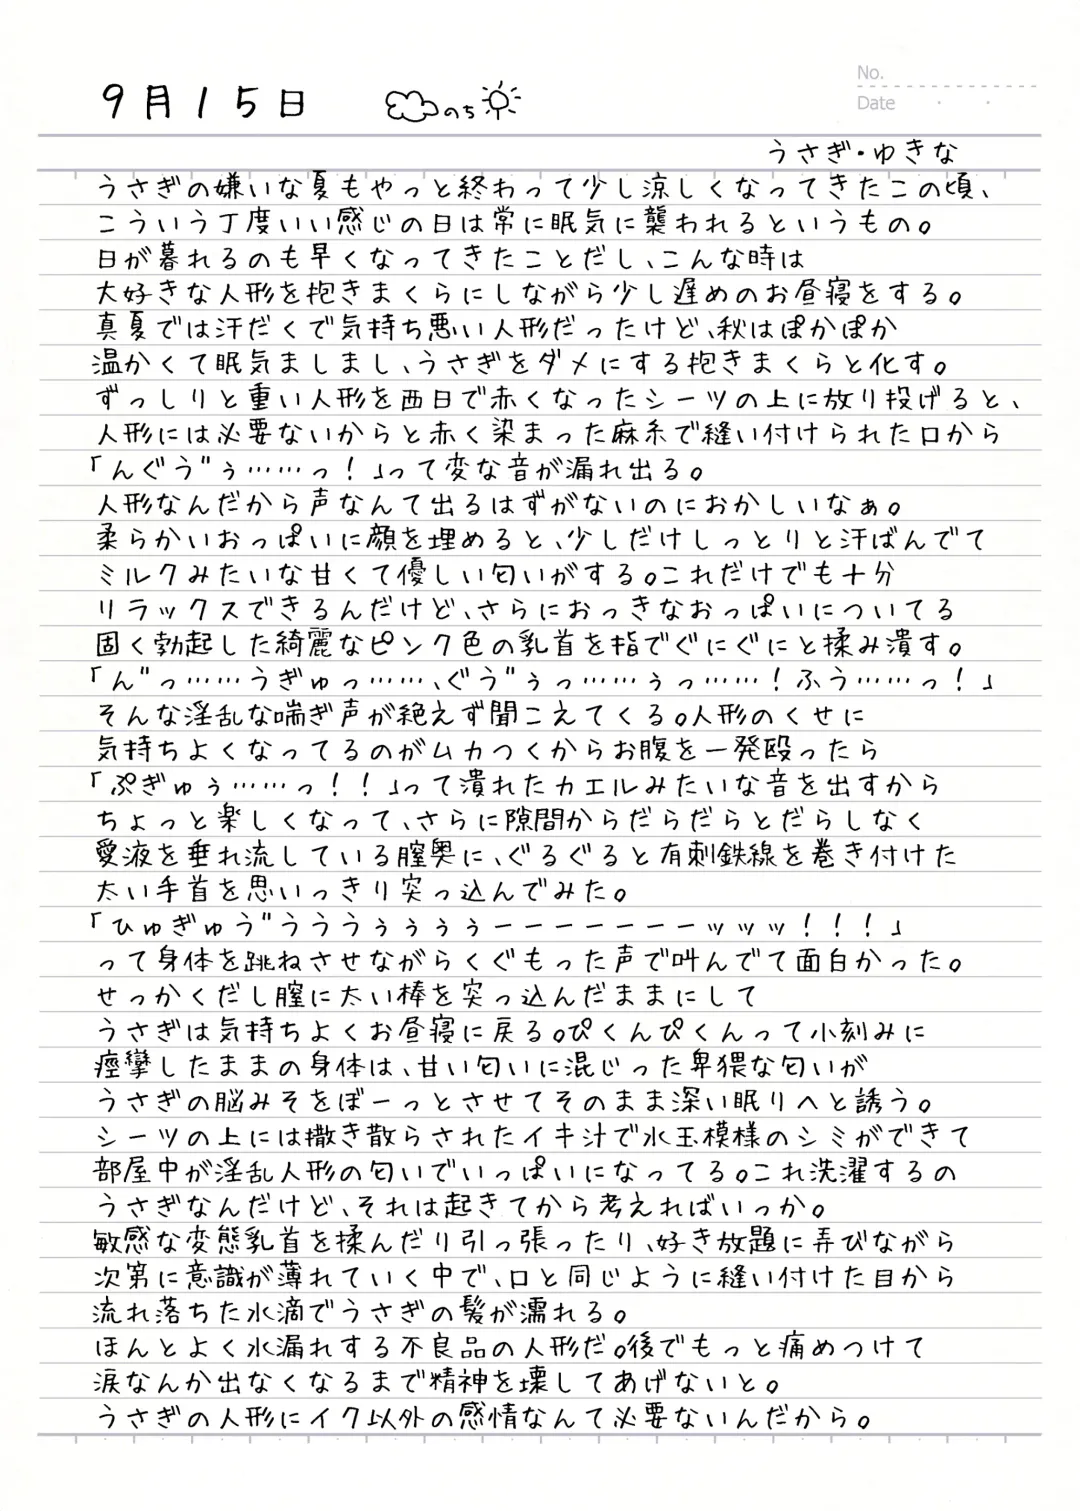 No.
9月15日 のち
Date
うさぎ・ゆきな
うさぎの嫌いな夏もやっと終わって少し涼しくなってきたこの頃、
こういう丁度いい感じの日は常に眠気に襲われるというもの。
日が暮れるのも早くなってきたことだし、こんな時は
大好きな人形を抱きまくらにしながら少し遅めのお昼寝をする。
真夏では汗だくで気持ち悪い人形だったけど、秋はぽかぽか
温かくて眠気ましまし、うさぎをダメにする抱きまくらと化す。
ずっしりと重い人形を西日で赤くなったシーツの上に放り投げると、
人形には必要ないからと赤く染まった麻糸で縫い付けられた口から
「んぐう"ぅ……っ！」って変な音が漏れ出る。
人形なんだから声なんて出るはずがないのにおかしいなぁ。
柔らかいおっぱいに顔を埋めると、少しだけしっとりと汗ばんでて
ミルクみたいな甘くて優しい匂いがする。これだけでも十分
リラックスできるんだけど、さらにおっきなおっぱいについてる
固く勃起した綺麗なピンク色の乳首を指でぐにぐにと揉み潰す。
「ん"っ……うぎゅっ……、ぐう"ぅっ……ぅっ……！ふう……っ！」
そんな淫乱な喘ぎ声が絶えず聞こえてくる。人形のくせに
気持ちよくなってるのがムカつくからお腹を一発殴ったら
「ぷぎゅぅ……っ！！」って潰れたカエルみたいな音を出すから
ちょっと楽しくなって、さらに隙間からだらだらとだらしなく
愛液を垂れ流している膣奥に、ぐるぐると有刺鉄線を巻き付けた
太い手首を思いっきり突っ込んでみた。
「ひゅぎゅう"うううぅぅぅぅーーーーーーーッッッ！！！」
って身体を跳ねさせながらくぐもった声で叫んでて面白かった。
せっかくだし膣に太い棒を突っ込んだままにして
うさぎは気持ちよくお昼寝に戻る。ぴくんぴくんって小刻みに
痙攣したままの身体は、甘い匂いに混じった卑猥な匂いが
うさぎの脳みそをぼーっとさせてそのまま深い眠りへと誘う。
シーツの上には撒き散らされたイキ汁で水玉模様のシミができて
部屋中が淫乱人形の匂いでいっぱいになってる。これ洗濯するの
うさぎなんだけど、それは起きてから考えればいっか。
敏感な変態乳首を揉んだり引っ張ったり、好き放題に弄びながら
次第に意識が薄れていく中で、口と同じように縫い付けた目から
流れ落ちた水滴でうさぎの髪が濡れる。
ほんとよく水漏れする不良品の人形だ。後でもっと痛めつけて
涙なんか出なくなるまで精神を壊してあげないと。
うさぎの人形にイク以外の感情なんて必要ないんだから。